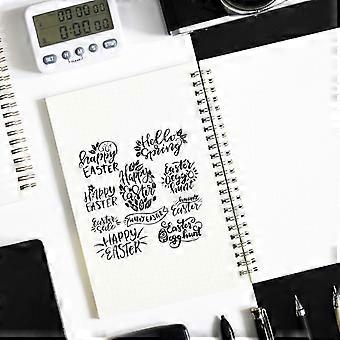 happy
EASTER
Hello
Spring
HAPPY
EASTER
Happy
Easter
Easter
egg
hunt
Easter
Sale
HAPPY
EASTER
Easter
Easter
egg hunt